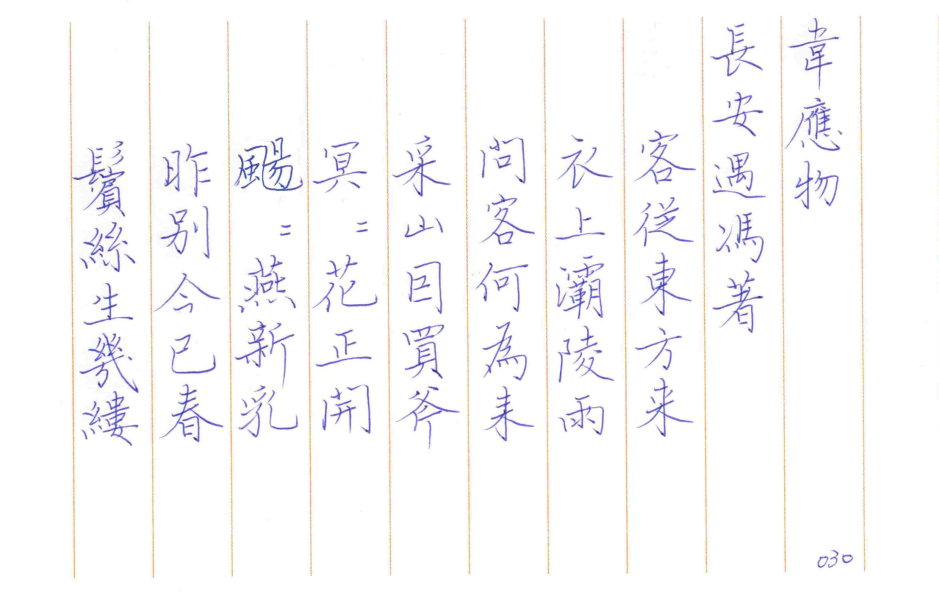 韋應物
長安遇馮著
客從東方来
衣上灞陵雨
問客何為来
采山因買斧
冥〻花正開
颺〻燕新乳
昨別今已春
鬢絲生幾縷
030